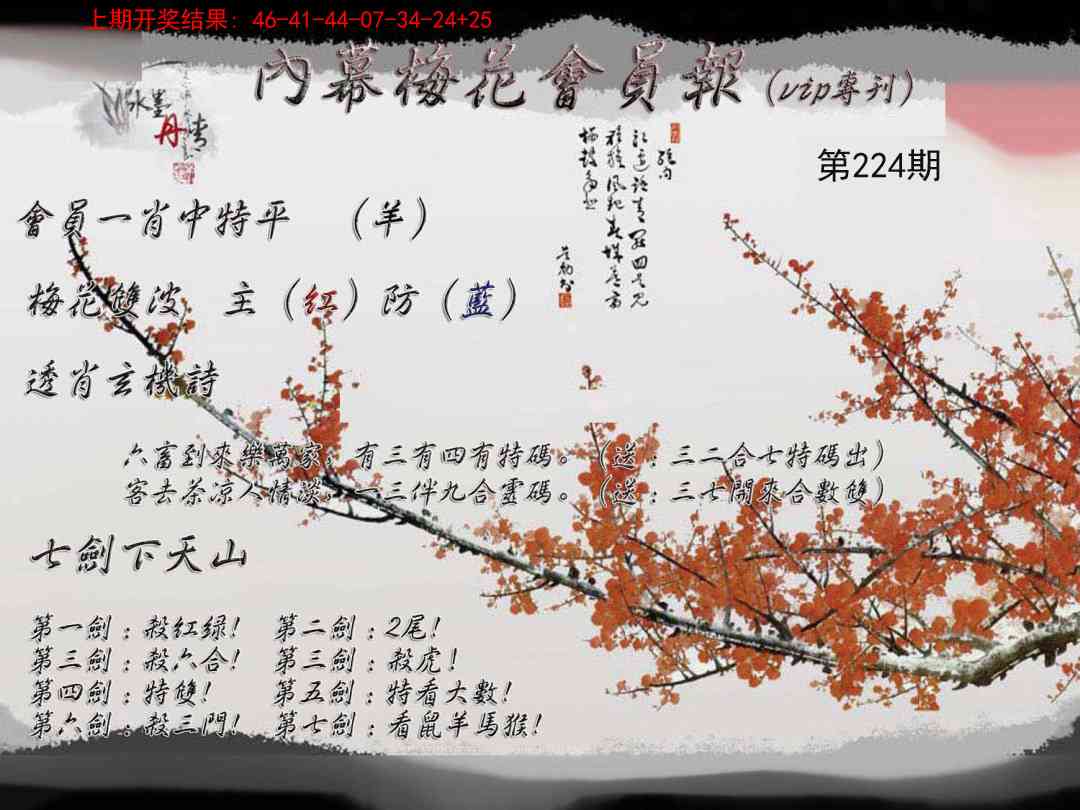 上期开奖结果: 46-41-44-07-34-24+25
內幕梅花會員報(vip專刊)
水墨丹青
第224期
會員一肖中特平 (羊)
梅花雙波 主(紅)防(藍)
透肖玄機詩
六畜到來樂萬家，有三有四有特碼。(送：三二合七特碼出)
客去茶凉人情淡，一三伴九合靈碼。(送：三七開來合數雙)
七劍下天山
第一劍：殺紅绿! 第二劍：2尾!
第三劍：殺六合! 第三劍：殺虎!
第四劍：特雙! 第五劍：特看大數!
第六劍：殺三門! 第七劍：看鼠羊馬猴!